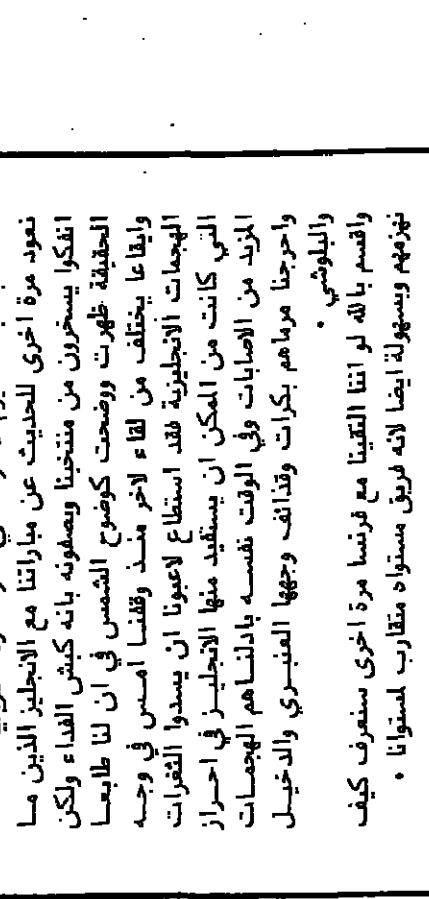 نعود مرة اخرى للحديث عن مباراتنا مع الانجليز الذين مـا
انفكوا يسخرون من منتخبنا ويصفونه بانه كبش الفداء ولكن
الحقيقة ظهرت ووضحت كوضوح الشمس في ان لنا طابعـا
وايقاعا يختلف من لقاء لاخر منـذ وقفنـا امـس في وجـه
الهجمات الانجليزية فقد استطاع لاعبونا ان يسدوا الثغرات
التي كانت من الممكن ان يستفيد منها الانجليـز في احـراز
المزيد من الاصابات وفي الوقت نفسـه بادلنـاهم الهجمـات
واحرجنا مرماهم بكرات وقذائف وجهها العنبـري والدخيـل
والبلوشي .
واقسم بالله لو اننا التقينا مع فرنسا مرة اخرى سنعرف كيف
نهزمهم وبسهولة ايضا لانه فريق مستواه متقارب لمستوانا .